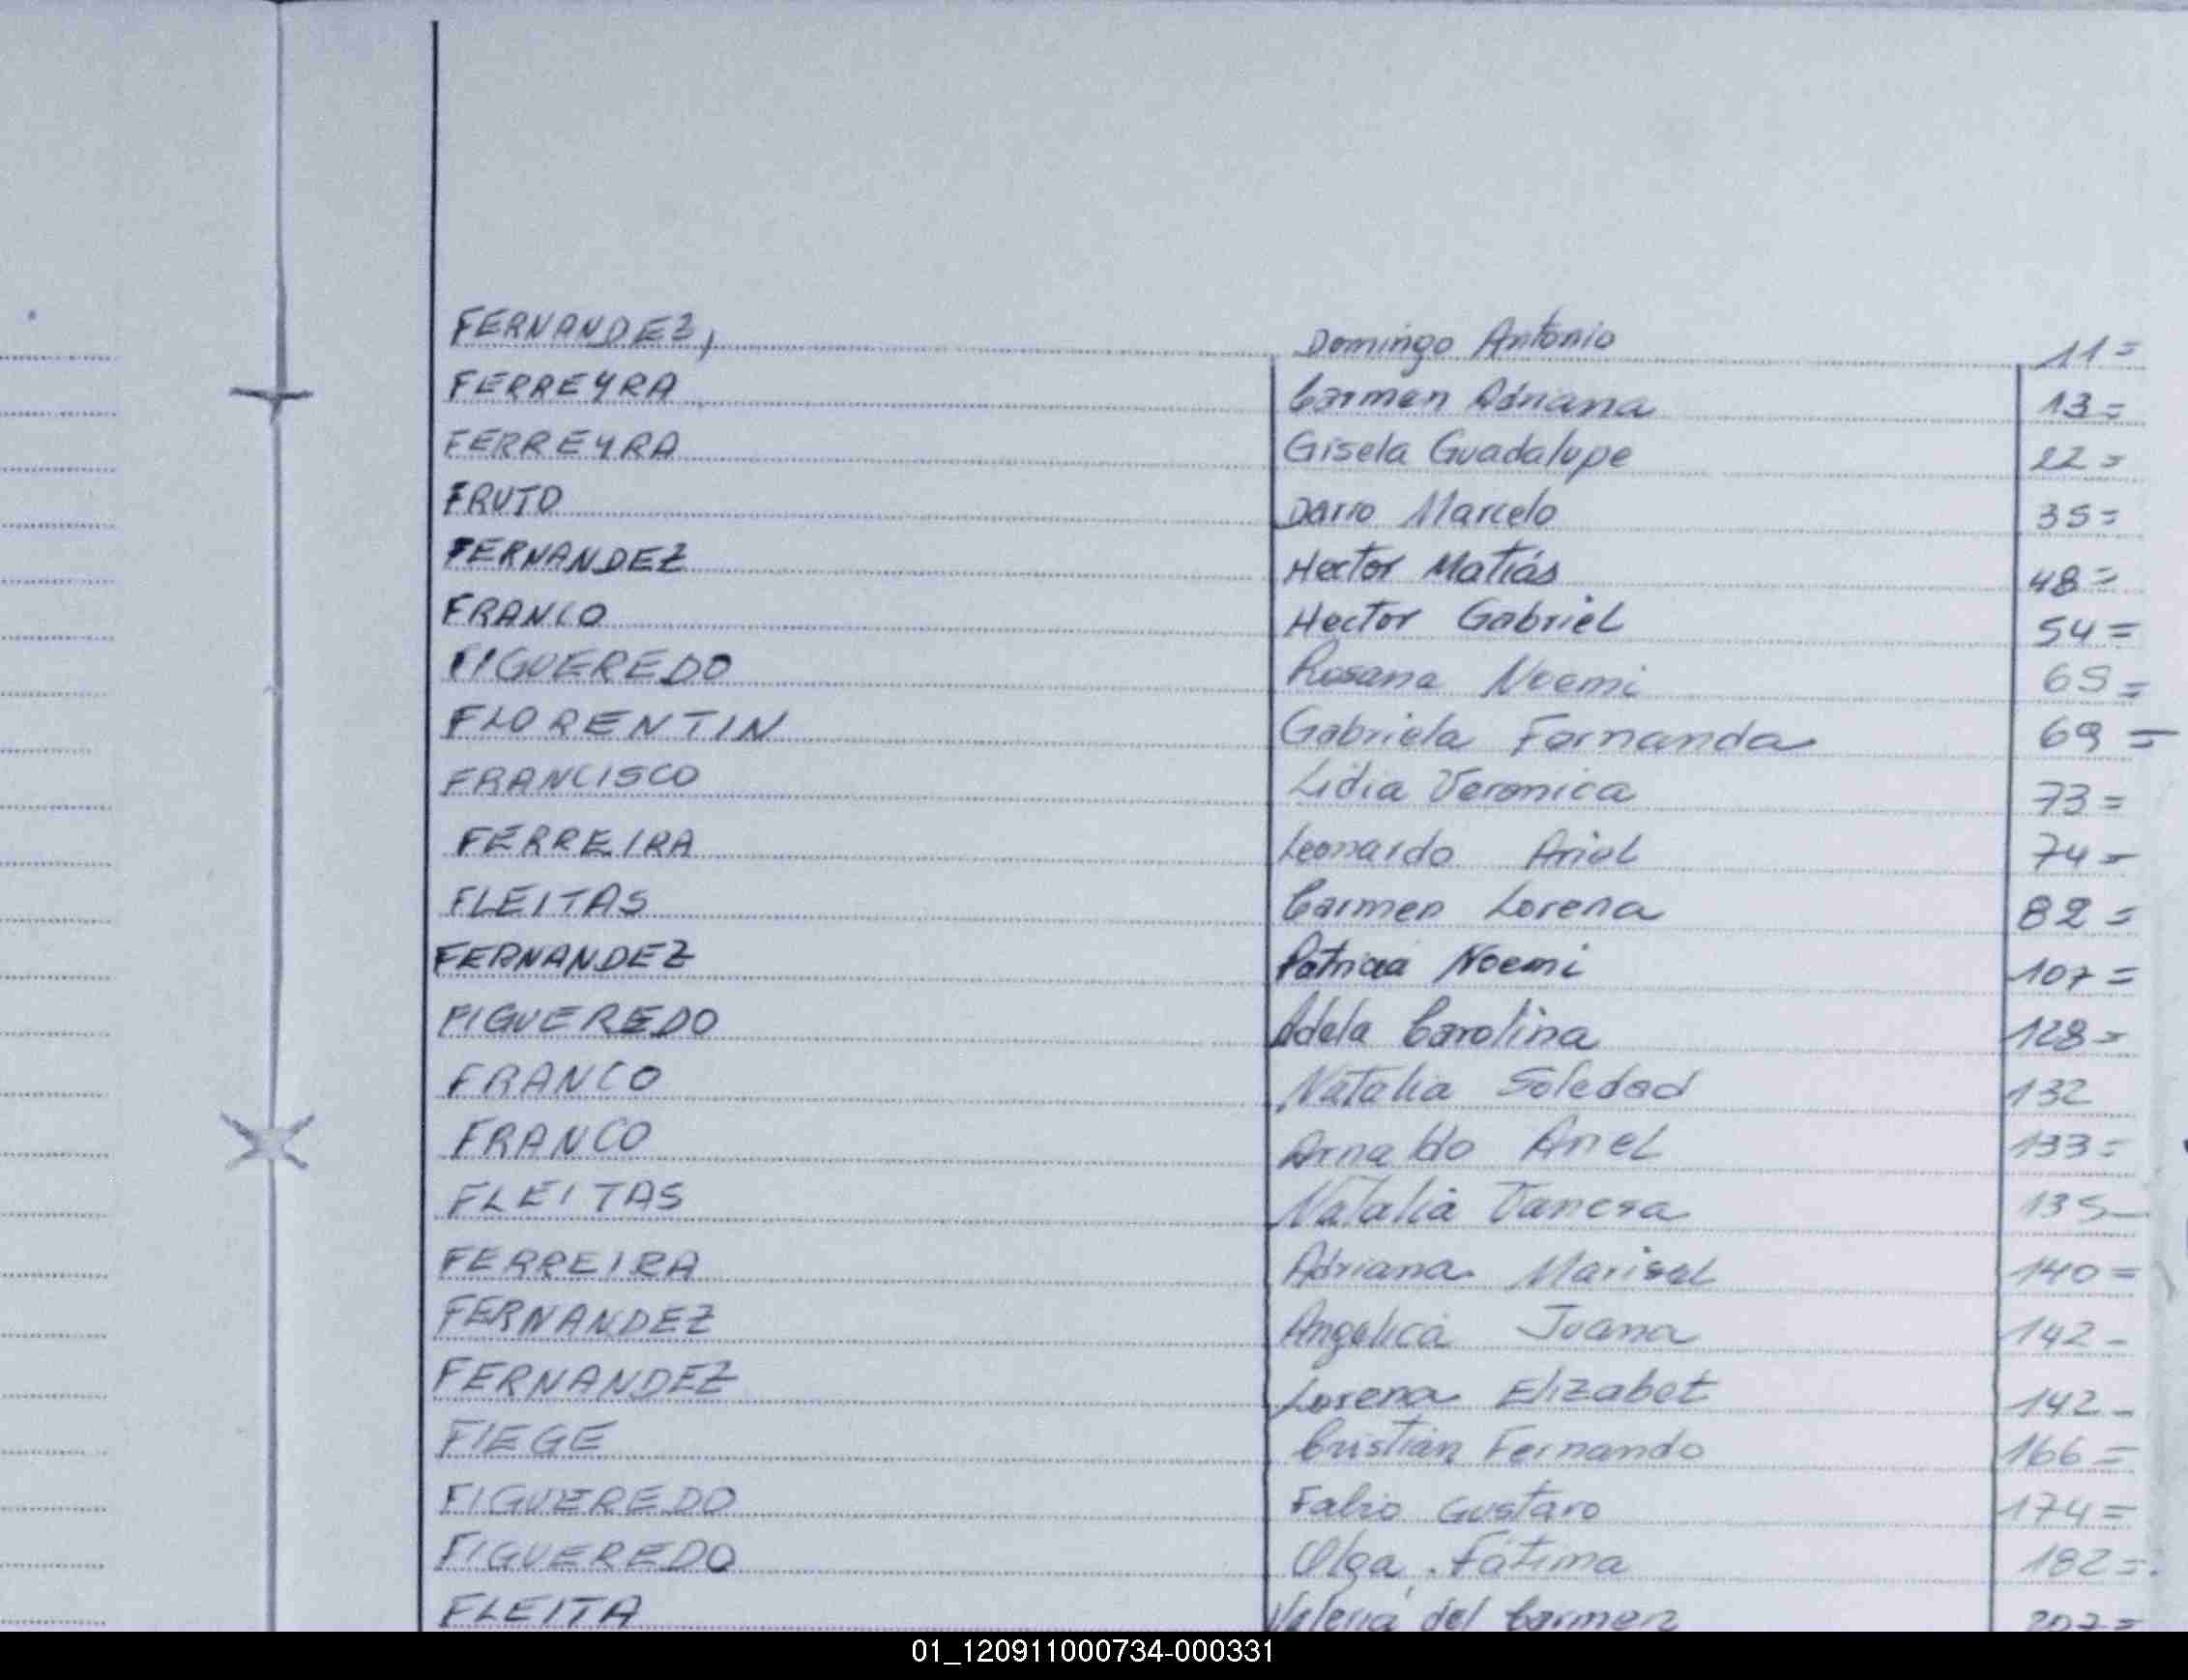 FERNANDEZ, Domingo Antonio 11=
FERREYRA Carmen Adriana 13=
FERREYRA Gisela Guadalupe 22=
FRUTO Dario Marcelo 35=
FERNANDEZ Hector Matiás 48=
FRANCO Hector Gabriel 54=
FIGUEREDO Rosana Noemi 65=
FLORENTIN Gabriela Fernanda 69=
FRANCISCO Lidia Veronica 73=
FERREIRA Leonardo Ariel 74=
FLEITAS Carmen Lorena 82=
FERNANDEZ Patricia Noemi 107=
FIGUEREDO Adela Carolina 128=
FRANCO Natalia Soledad 132
FRANCO Arnaldo Ariel 133=
FLEITAS Natalia Vanesa 135-
FERREIRA Adriana Marisel 140=
FERNANDEZ Angelica Juana 142-
FERNANDEZ Lorena Elizabet 142-
FIEGE Cristian Fernando 166=
FIGUEREDO Fabio Gustavo 174=
FIGUEREDO Olga Fátima 182=
FLEITA Valeria del Carmen
01_120911000734-000331